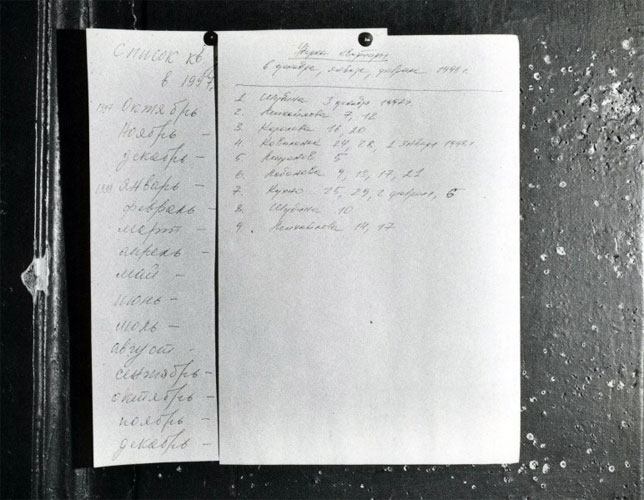 Список кв
в 1997,
1997 Октябрь
Ноябрь -
декабрь -
январь -
февраль -
март -
апрель -
май -
июнь -
июль -
август -
сентябрь -
октябрь -
ноябрь -
декабрь -
в декабре, январе, феврале 1998 г.
1. Шубина 3 декабр 1997г.
2. Михайлова 7, 12
3. 16, 20
4. 24, 28, 2 января 1998г.
5 5
6. 9, 13, 17, 21
7. 25, 29, 2 февраля, 6
8. Шубина 10
9. Михайлова 14, 17